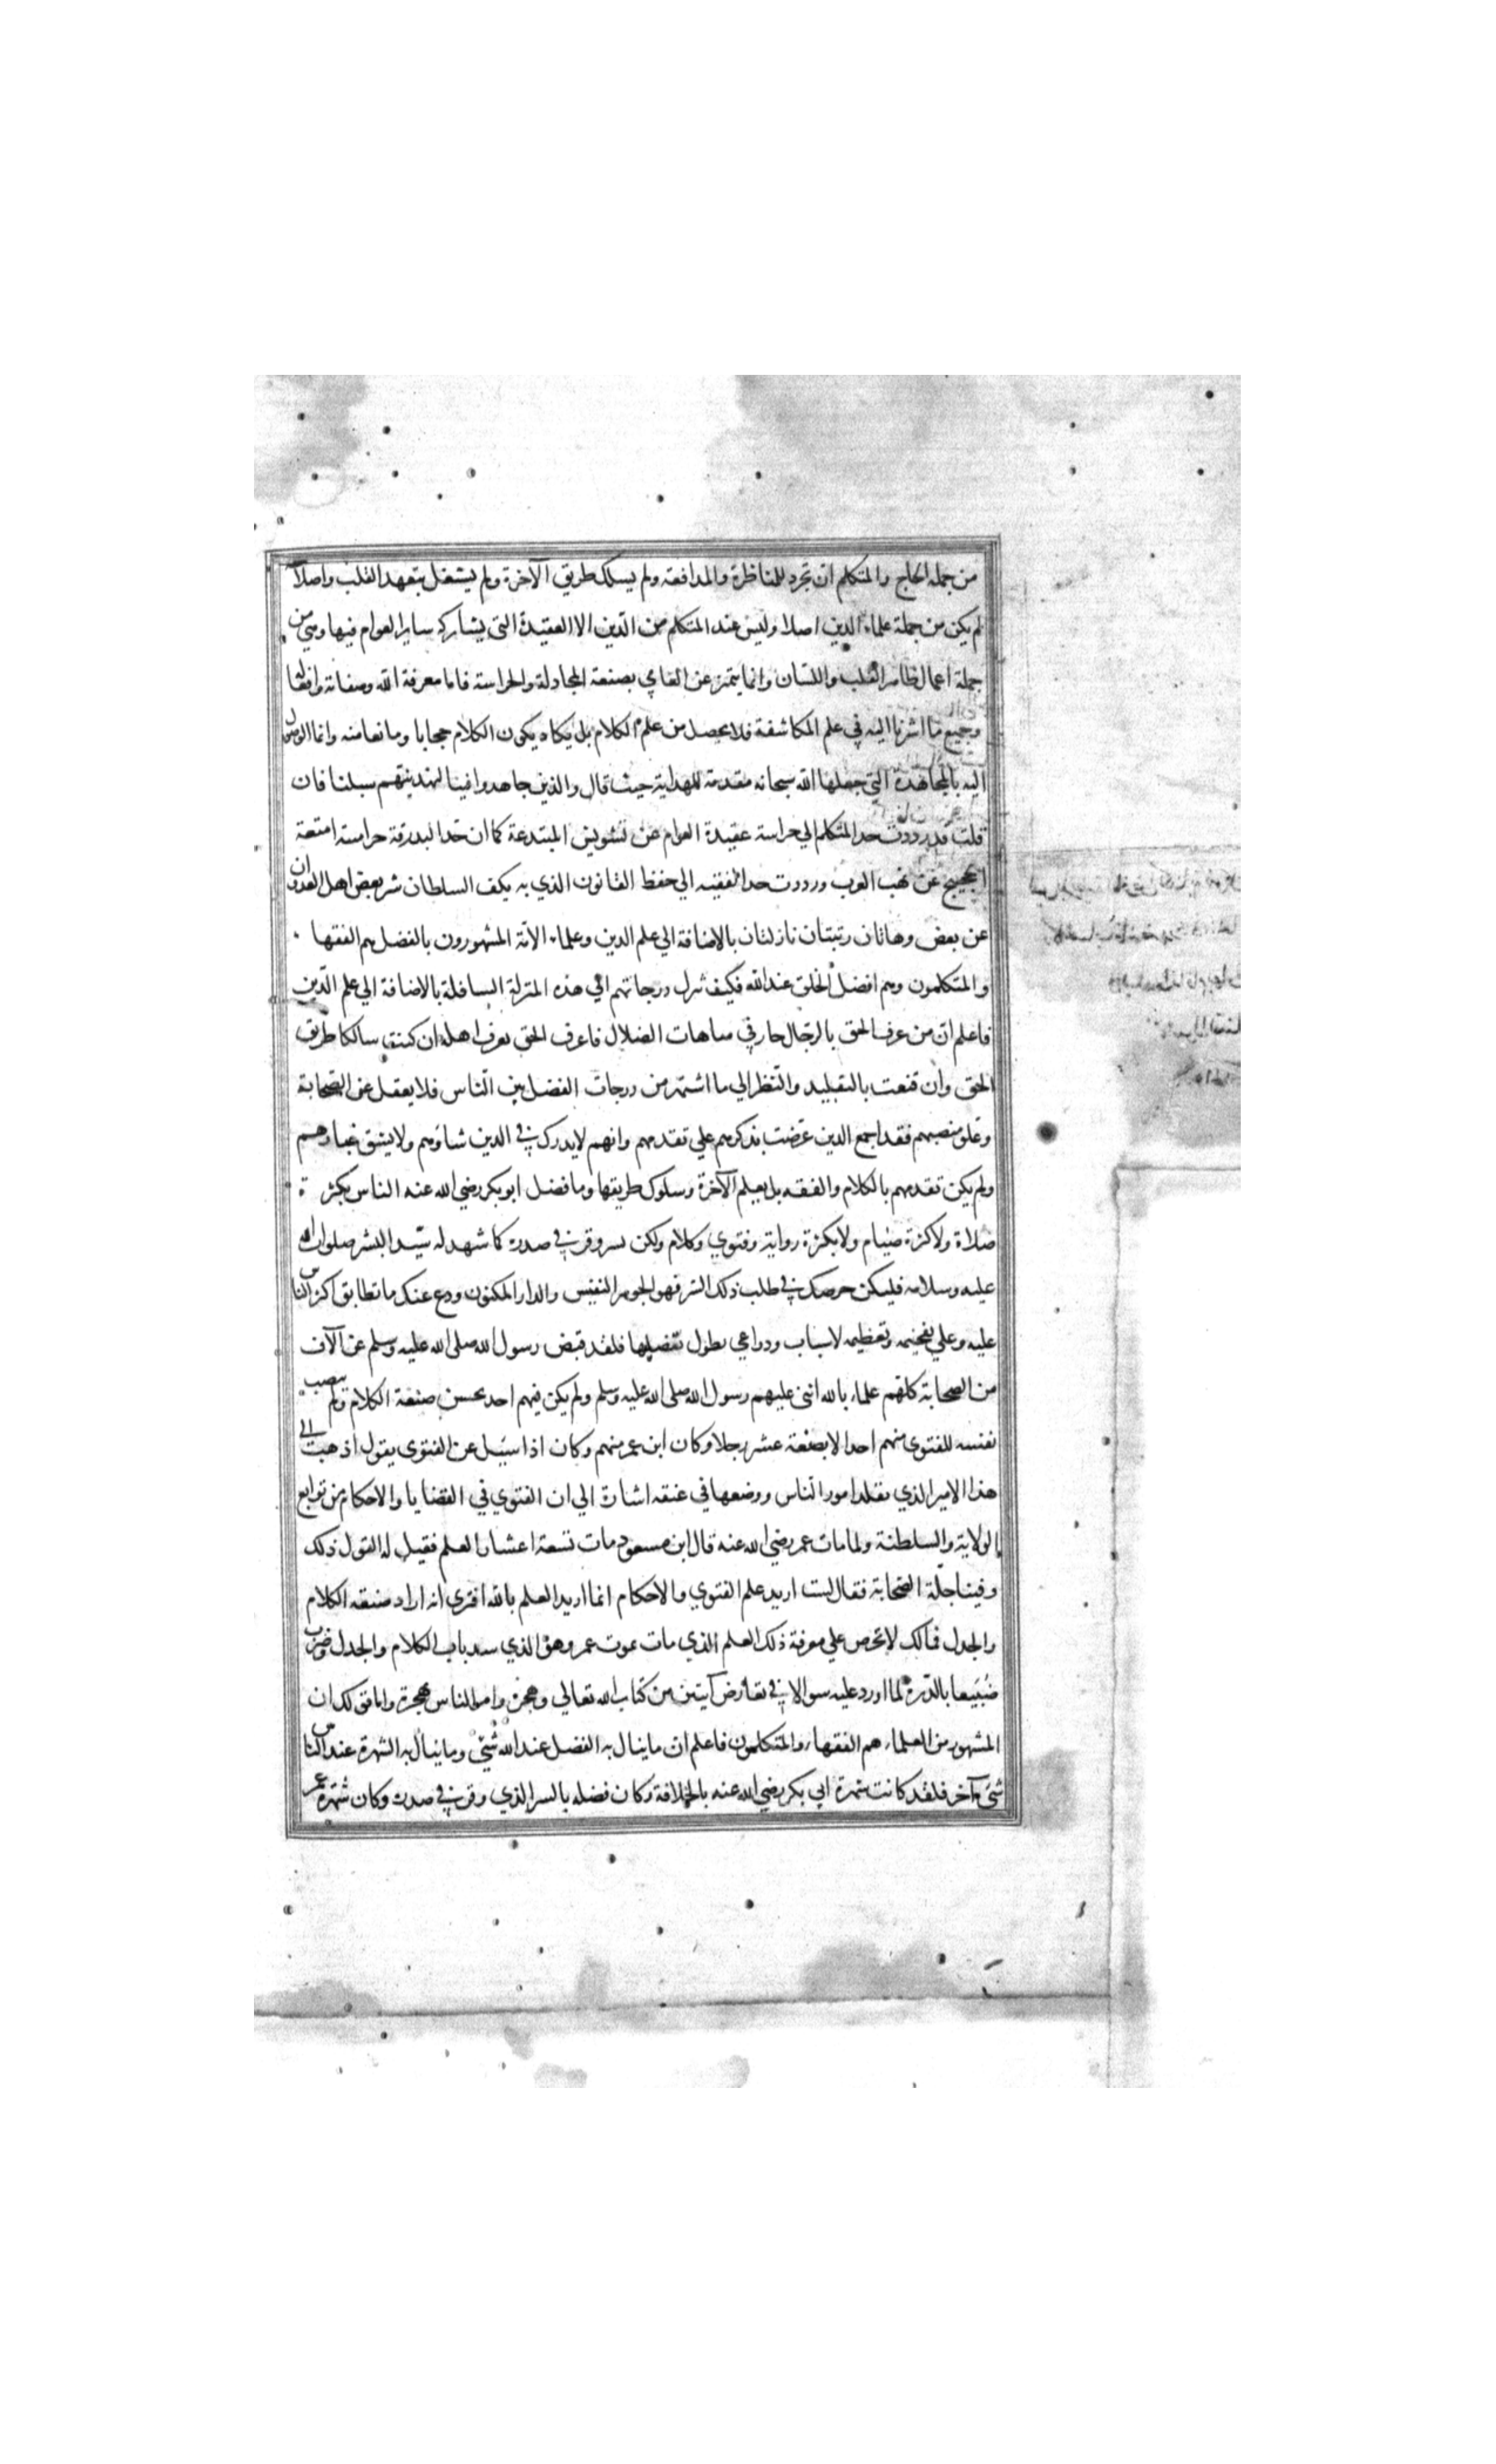 من جملة الحاج والمتكلم ان تجرد للمناظرة والمدافعة ولم يسلك طريق الآخرة ولم يشتغل بتعهد القلب واصلا
لم يكن من جملة علماء الدين اصلا وليس عند المتكلم من الدين الا العقيدة التى يشاركه ساير العوام فيها وهي من
جملة اعمال ظاهر القلب واللسان وانما يتميز عن العامي بصنعة المجادلة والحراسة فاما معرفة الله وصفاته وافعاله
وجميع ما اشرنا اليه في علم المكاشفة فلا يحصل من علم الكلام بل يكاد يكون الكلام حجابا ومانعا منه وانما الوصول
اليه بالمجاهدة التي جعلها الله سبحانه مقدمة للهداية حيث قال والذين جاهدوا فينا لنهدينهم سبلنا فان
قلت قد رددت حد المتكلم الي حراسة عقيدة العوام عن تشويش المبتدعة كما ان حد البدرقة حراسة امتعة
الحجيج عن نهب العرب ورددت حد الفقيه الي حفظ القانون الذي به يكف السلطان شر بعض اهل العدوان
عن بعض وهاتان رتبتان نازلتان بالاضافة الي علم الدين وعلماء الامة المشهورون بالفضل هم الفقها
والمتكلمون وهم افضل الخلق عند الله فكيف تنزل درجاتهم الي هذه المنزلة السافلة بالاضافة الي علم الدين
فاعلم ان من عرف الحق بالرجال حار في متاهات الضلال فاعرف الحق تعرف اهله ان كنت سالكا طريق
الحق وان قنعت بالتقليد والنظر الي ما اشتهر من درجات الفضل بين الناس فلا يغفل عن الصحابة
وعلو منصبهم فقد اجمع الدين عرضت بذكرهم علي تقدمهم وانهم لا يدرك في الدين شاوهم ولا يشق غبارهم
ولم يكن تقدمهم بالكلام والفقه بل بعلم الآخرة وسلوك طريقها وما فضل ابو بكر رضي الله عنه الناس بكثرة
صلاة ولا كثرة صيام ولا بكثرة رواية وفتوي وكلام ولكن بسر وقر في صدره كما شهد له سيد البشر صلوات الله
عليه وسلامه فليكن حرصك في طلب ذلك السر فهو الجوهر النفيس والدار المكنون ودع عنك ما تطابق اكثر الناس
عليه وعلي تفخيمه وتعظيمه لاسباب ودواعي يطول تفصيلها فلقد قبض رسول الله صلى الله عليه وسلم عن آلاف
من الصحابة كلهم علماء بالله اثنى عليهم رسول الله صلى الله عليه وسلم ولم يكن فيهم احد يحسن صنعة الكلام ولم ينصب
نفسه للفتوى منهم احد الا بضعة عشر رجلا وكان ابن عمر منهم وكان اذا سيل عن الفتوى يقول اذهب الي
هذا الامير الذي تقلد امور الناس ووضعها في عنقه اشارة الي ان الفتوي في القضايا والاحكام من توابع
الولاية والسلطنة ولما مات عمر رضي الله عنه قال ابن مسعود مات تسعة اعشار العلم فقيل له اتقول ذلك
وفينا جلة الصحابة فقال لست اريد علم الفتوي والاحكام انما اريد العلم بالله افترى انه اراد صنعه الكلام
والجدل فمالك لا تحرص علي معرفة ذلك العلم الذي مات بموت عمر وهو الذي سد باب الكلام والجدل وضرب
ضبيعا بالدرة لما اورد عليه سوالا في تعارض آيتين من كتاب الله تعالي وهجره وامر الناس بهجرة واما قولك ان
المشهور من العلماء هم الفقهاء والمتكلمون فاعلم ان ما ينال به الفضل عند الله شئ وما ينال به الشهرة عند الناس
شئ آخر فلقد كانت شهرة ابي بكر رضي الله عنه بالخلافة وكان فضله بالسر الذي وقر في صدره وكان شهرة عمر